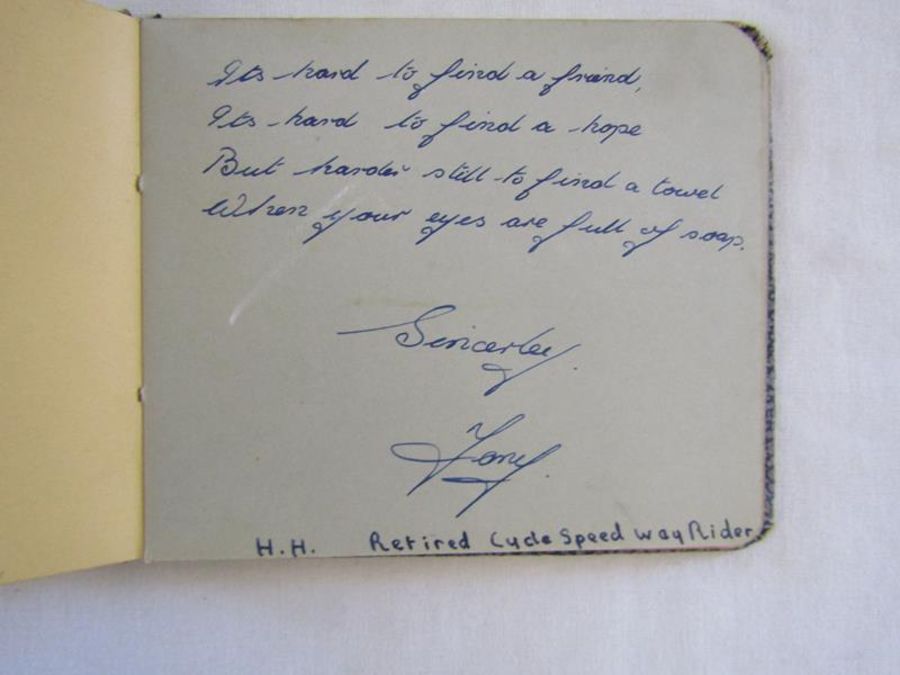 Its hard to find a freind,
Its hard to find a hope
But harder still to find a towel
When your eyes are full of soap.
Sincerley
Tony
H.H. Retired Cycle Speed Way Rider